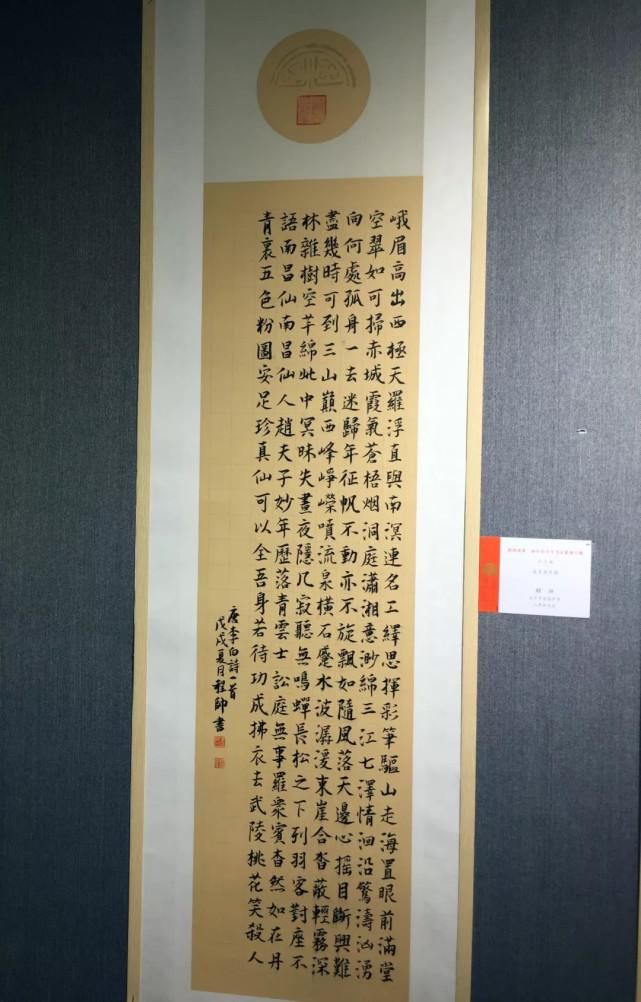 峨眉高出西極天羅浮直與南溟連名工繹思揮彩筆驅山走海置眼前滿堂
空翠如可掃赤城霞氣蒼梧烟洞庭瀟湘意渺綿三江七澤情洄沿驚濤汹湧
向何處孤身一去迷歸年征帆不動亦不旋飄如隨風落天邊心摇目斷興難
盡幾時可到三山巔西峰崢嶸噴流泉橫石蹙水波潺湲東崖合沓蔽輕霧深
林雜樹空芊綿此中冥昧失晝夜隱几寂聽無鳴蟬長松之下列羽客對座不
語南昌仙南昌仙人趙夫子妙年歷落青雲士訟庭無事羅衆賓杳然如在丹
青裏五色粉圖安足珍真仙可以全吾身若待功成拂衣去武陵桃花笑殺人
唐李白詩一首
戊戌夏月程帥書